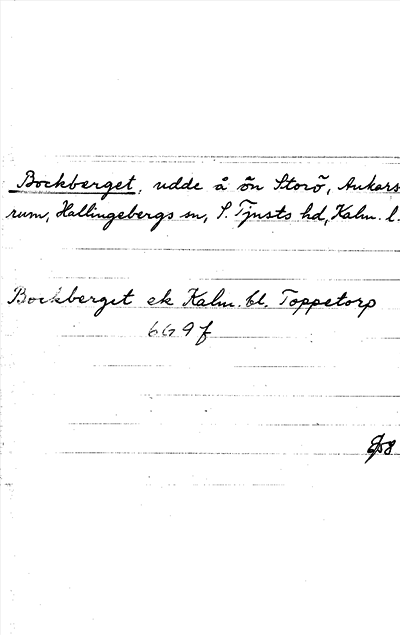 Bockberget, udde å ön Storö, Ankars
rum, Hallingebergs sn, S. Tjusts hd, Kalm. l.
Bockberget ek Kalm. bl. Toppetorp
6G9f